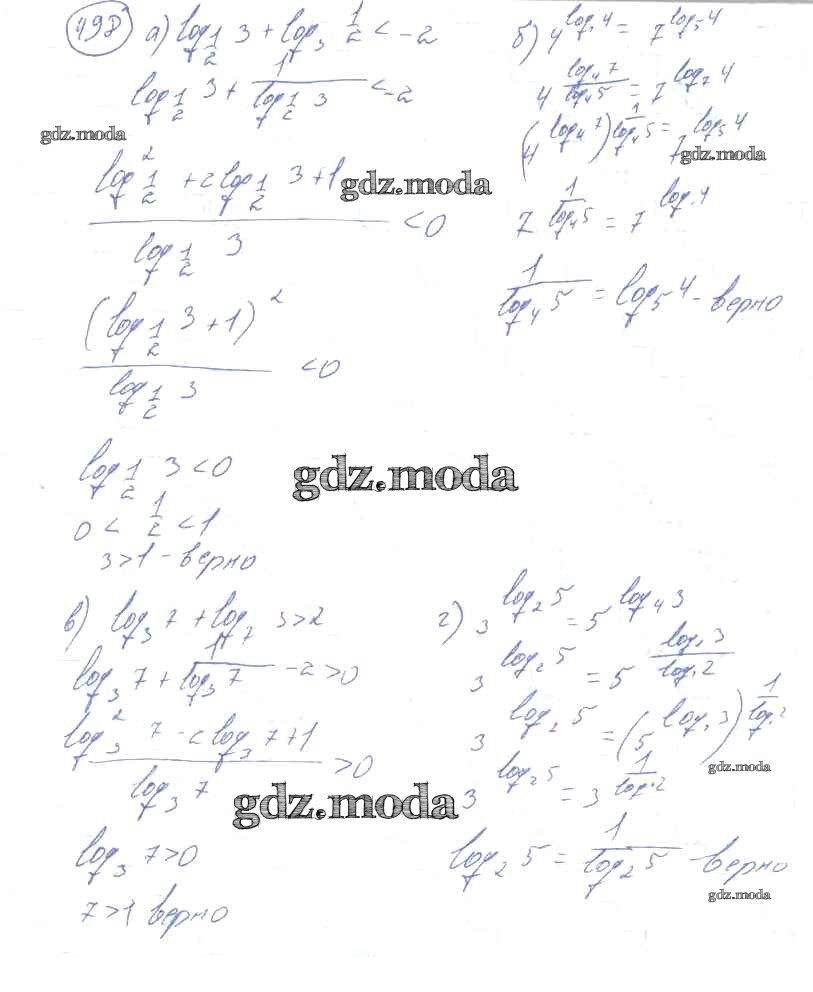 498 а) log_{1/2} 3 + log_3 1/2 < -2
log_{1/2} 3 + 1/(log_{1/2} 3) < -2
gdz.moda
(log²_{1/2} + 2log_{1/2} 3 + 1)/(log_{1/2} 3) < 0
gdz.moda
(log_{1/2} 3 + 1)²/(log_{1/2} 3) < 0
log_{1/2} 3 < 0
gdz.moda
0 < 1/2 < 1
3 > 1 - верно
б) 4^{log_5 7} = 7^{log_5 4}
4^{(log_4 7)/(log_4 5)} = 7^{log_5 4}
(4^{log_4 7})^{1/(log_4 5)} = 7^{log_5 4}
gdz.moda
7^{1/(log_4 5)} = 7^{log_5 4}
1/(log_4 5) = log_5 4 - верно
в) log_3 7 + log_7 3 > 2
log_3 7 + 1/(log_3 7) - 2 > 0
(log²_3 7 - 2log_3 7 + 1)/(log_3 7) > 0
gdz.moda
log_3 7 > 0
7 > 1 верно
г) 3^{log_2 5} = 5^{log_4 3}
3^{log_2 5} = 5^{(log_5 3)/(log_5 2)}
3^{log_2 5} = (5^{log_5 3})^{1/(log_5 2)}
gdz.moda
3^{log_2 5} = 3^{1/(log_5 2)}
log_2 5 = 1/(log_2 5) - верно
gdz.moda